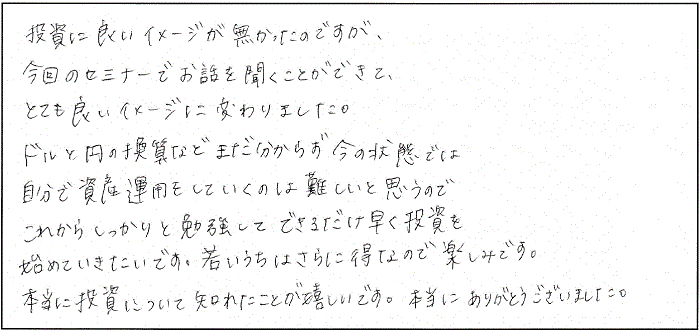 投資に良いイメージが無かったのですが、
今回のセミナーでお話を聞くことができて、
とても良いイメージに変わりました。
ドルと円の換算などまだ分からず今の状態では
自分で資産運用をしていくのは難しいと思うので
これからしっかりと勉強してできるだけ早く投資を
始めていきたいです。若いうちはさらに得なので楽しみです。
本当に投資について知れたことが嬉しいです。本当にありがとうございました。